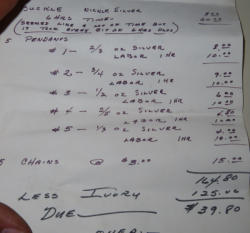 BUCKLE NICKLE SILVER
6 HRS TIME
(SEEMED LIKE A LOT OF TIME BUT
IT TOOK EVERY BIT OF 6 HRS PLUS)
5 PENDANTS
#1 - 2/3 OZ SILVER 8.00
LABOR 1 HR 10.00
#2 - 3/4 OZ SILVER 9.00
LABOR 1 HR 10.00
#3 - 1/2 OZ SILVER 6.00
LABOR 1 HR 10.00
#4 - 2/5 OZ SILVER 4.80
LABOR 1 HR 10.00
#5 - 1/3 OZ SILVER 4.00
LABOR 1 HR 10.00
5 CHAINS @ $3.00 15.00
164.80
LESS IVORY 125.00
DUE $39.80